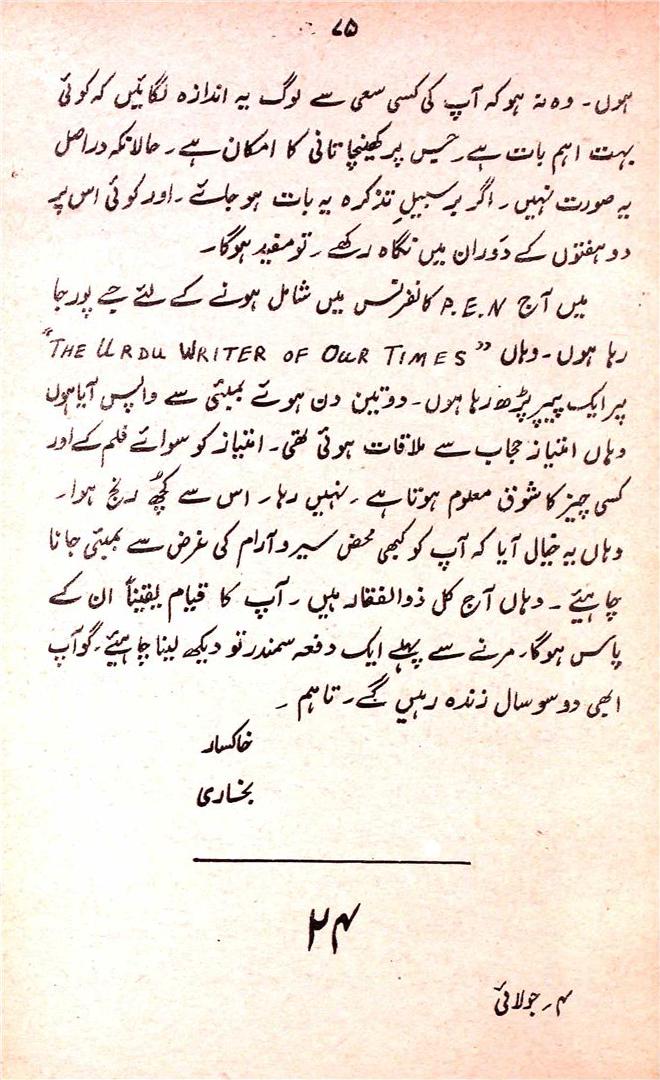 ۷۵
ہوں۔ وہ نہ ہو کہ آپ کی کسی سعی سے لوگ یہ اندازہ لگائیں کہ کوئی
بہت اہم بات ہے۔ جس پر کھینچا تانی کا امکان ہے۔ حالانکہ دراصل
یہ صورت نہیں۔ اگر برسبیلِ تذکرہ یہ بات ہو جائے۔ اور کوئی اس پر
دو ہفتوں کے دَوران میں نگاہ رکھے۔ تو مفید ہوگا۔
میں آج P.E.N کانفرنس میں شامل ہونے کے لئے جے پور جا
رہا ہوں۔ وہاں "THE URDU WRITER OF OUR TIMES"
پر ایک پیپر پڑھ رہا ہوں۔ دو تین دن ہوئے بمبئی سے واپس آیا ہوں
وہاں امتیاز حجاب سے ملاقات ہوئی تھی۔ امتیاز کو سوائے فلم کے اور
کسی چیز کا شوق معلوم ہوتا ہے۔ نہیں رہا۔ اس سے کچھ رنج ہوا۔
وہاں یہ خیال آیا کہ آپ کو کبھی محض سیر و آرام کی غرض سے بمبئی جانا
چاہیئے۔ وہاں آج کل ذوالفقار ہیں۔ آپ کا قیام یقیناً ان کے
پاس ہوگا۔ مرنے سے پہلے ایک دفعہ سمندر تو دیکھ لینا چاہیئے۔ گو آپ
ابھی دو سو سال زندہ رہیں گے۔ تاہم۔
خاکسار
بخاری
۲۴
۴۔ جولائی